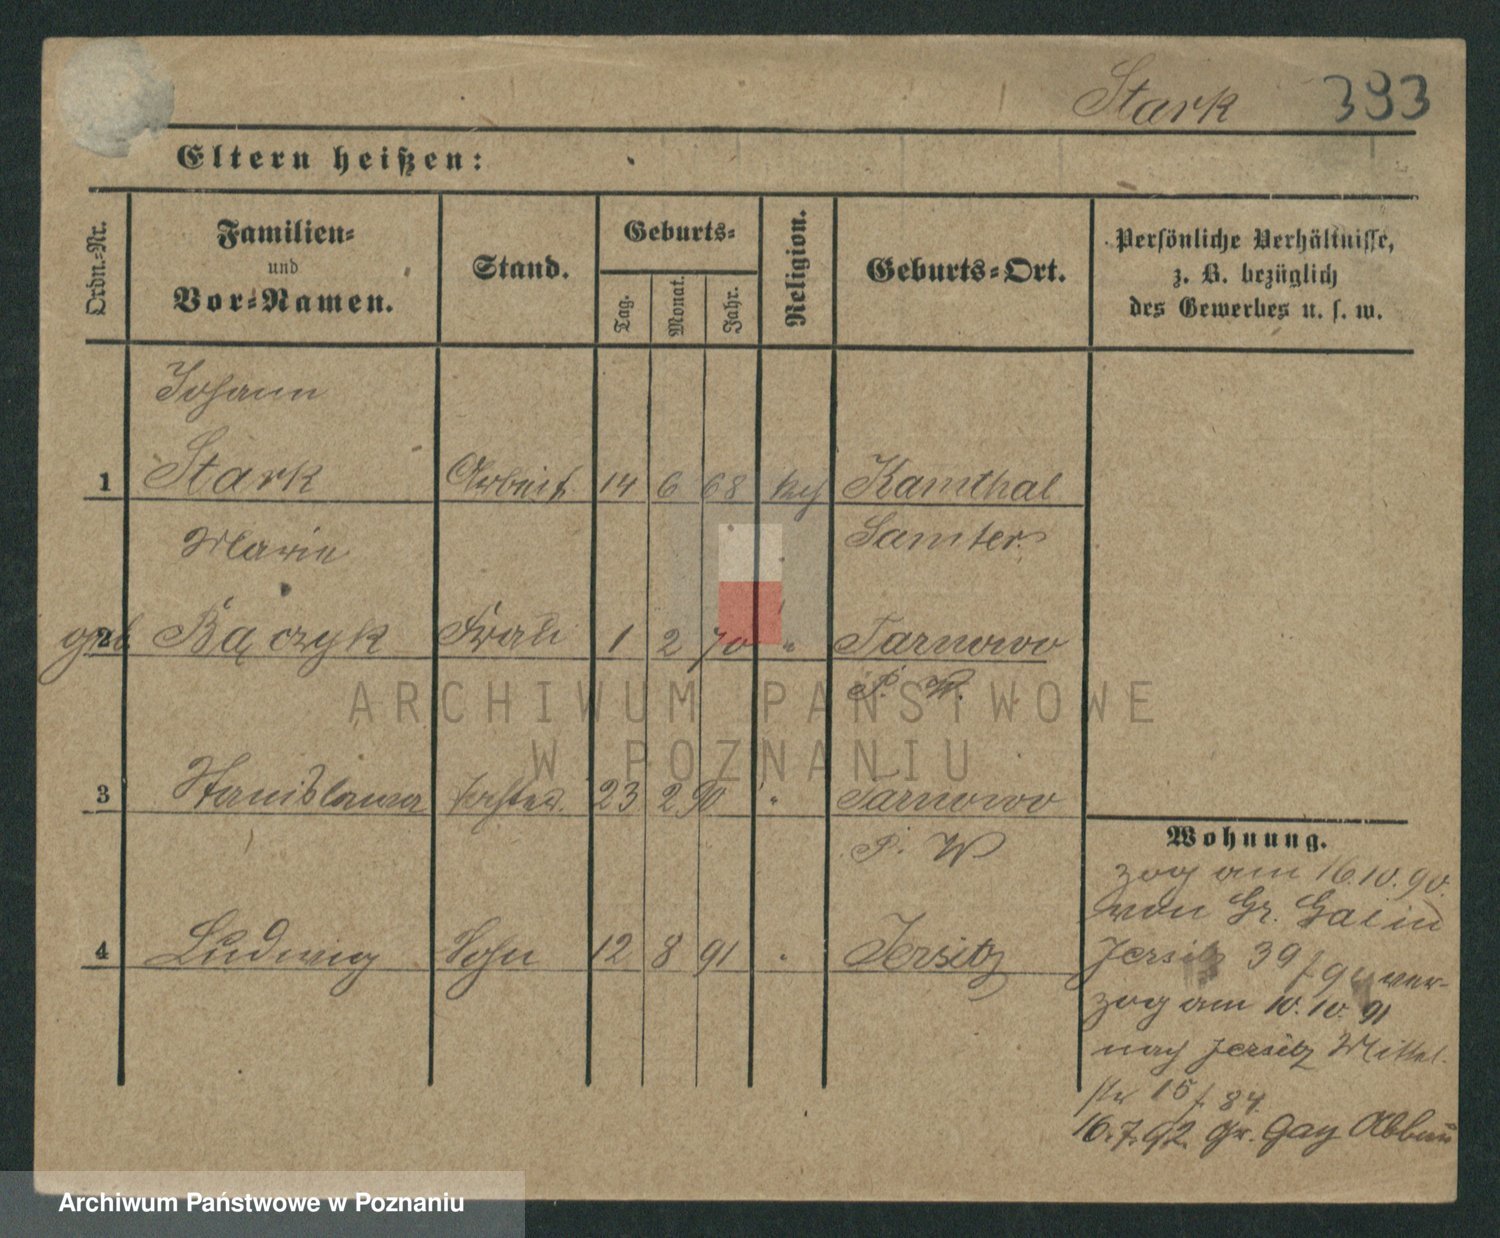 Stark 393
Eltern heißen:
Ordn.-Nr.
Familien-
und
Vor-Namen.
Stand.
Geburts-
Tag.
Monat.
Jahr.
Religion.
Geburts-Ort.
Persönliche Verhältnisse,
z. B. bezüglich
des Gewerbes u. s. w.
Johann
1 Stark Arbeit. 14 6 68 kath Kamthal
Samter.
Marie
2 geb. Bączyk Frau 1 2 70 " Tarnowo
P. W.
3 Stanislawa Tochter. 23 2 90 " Tarnowo
P. W
4 Ludwig Sohn 12 8 91 " Jersitz
Wohnung.
zog am 16.10.90.
von Gr. Gai in
Jersitz 39 / 94 ver-
zog am 10.10.91
nach Jersitz Mittel-
str 15 / 84.
16.7.92. Gr. Gay Abbau
ARCHIWUM PAŃSTWOWE
W POZNANIU
Archiwum Państwowe w Poznaniu